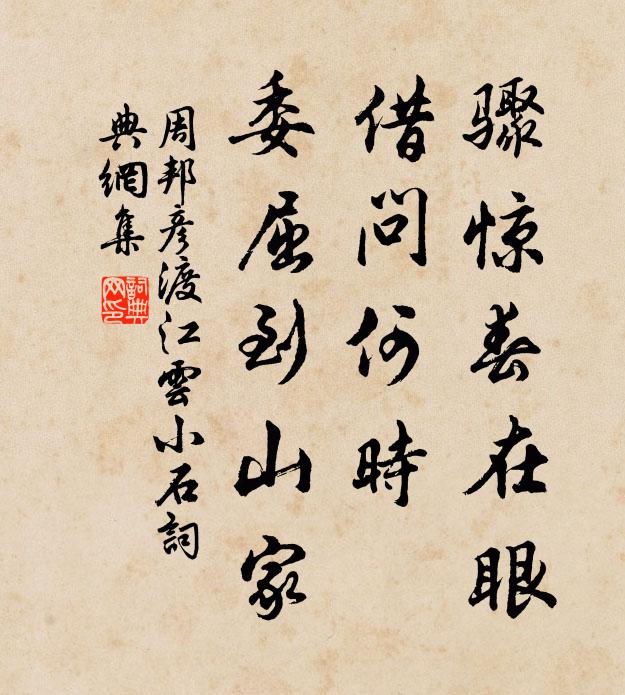 骤惊春在眼
借问何時
委屈到山家
周邦彦渡江雲小石詞
典網集
詞典
网印